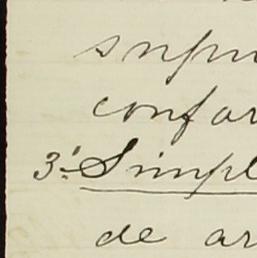 supu
confor
3ª Simpl
de ar